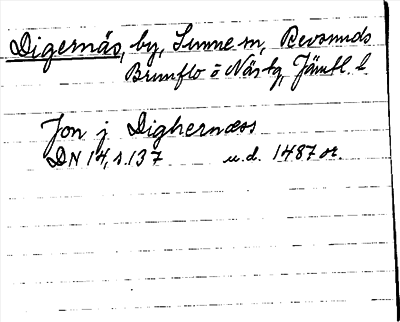 Digernäs, by, Sunne sn, Revsunds
Brunflo o Näs tg, Jämtl. l.
Jon j Dighernæss
DN 14, s. 137 u.d. 1487 or.